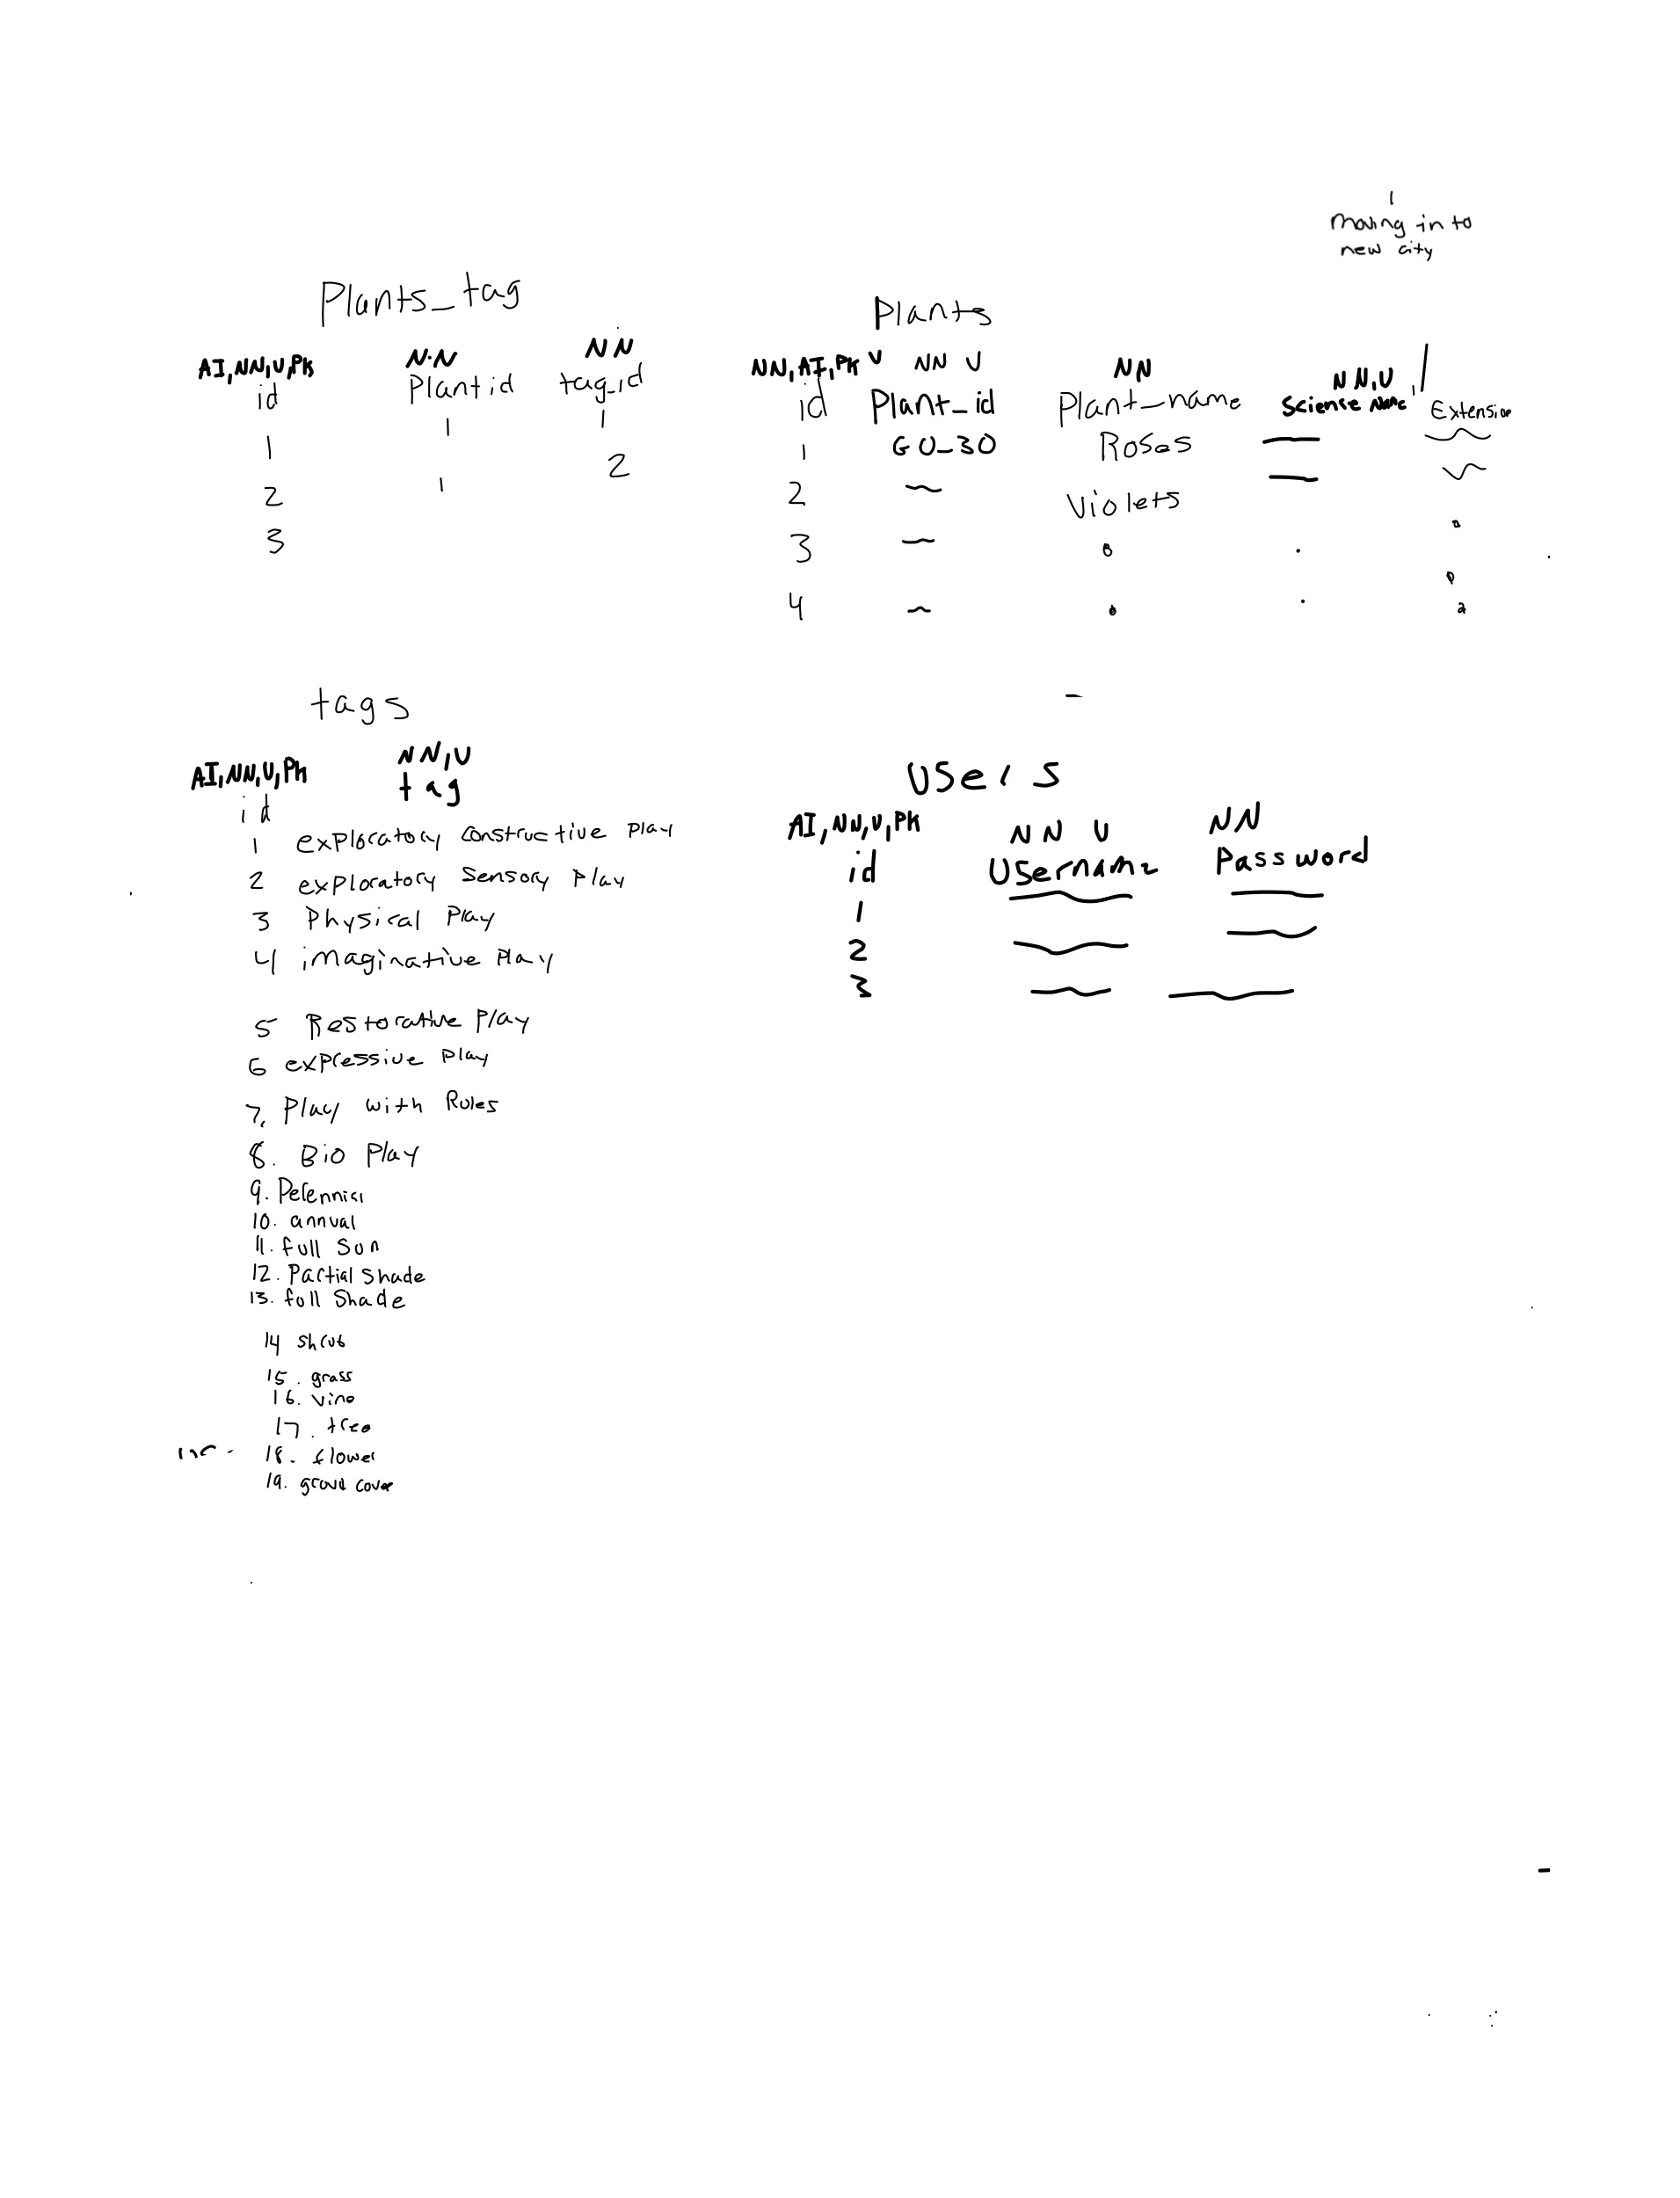 1
moving in to
new city
Plants_tag
AI, NN, U, PK
N.N
NN
id
Plant id
tag_id
1
1
1
2
1
2
3
Plants
NN, AI, PK U
NN U
NN
NN, U
id
Plant_id
Plant_name
Science Name
Extension
1
GO_30
Roses
2
Violets
3
4
tags
AI, NN, U, PK
NN, U
id
tag
1 exploratory constructive play
2 exploratory sensory play
3 Physical Play
4 imaginative Play
5 Restorative Play
6 expressive play
7. Play with Rules
8. Bio Play
9. Perennial
10. annual
11. full Sun
12. Partial Shade
13. full Shade
14 shrub
15. grass
16. vine
17. tree
18. flower
19. cover
Users
AI, NN, U, PK
NN U
NN
id
Username
Password
1
2
3